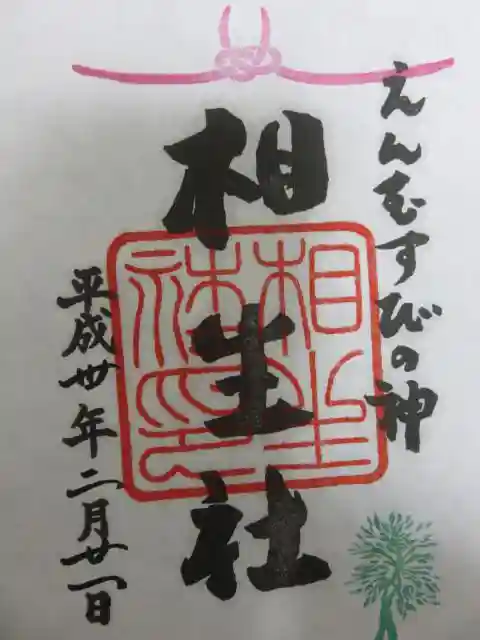 えんむすびの神
相生社
相生社神印
平成卅年二月廿一日